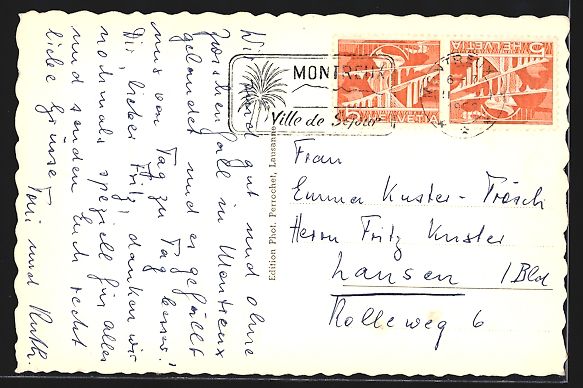 Wir sind gut und ohne
Zwischenfall in Montreux
gelandet und es gefällt
uns von Tag zu Tag besser.
Dir, lieber Fritz, danken wir
nochmals speziell für alles
und senden Euch recht
liebe Grüsse Toni und Ruth.
Edition Phot. Perrochet, Lausanne
MONTREUX
Ville de Séjour
HELVETIA 5
HELVETIA 5
Frau
Emma Kuster-Trösch
Herrn Fritz Kuster
Lausen / Bld
Rolleweg 6